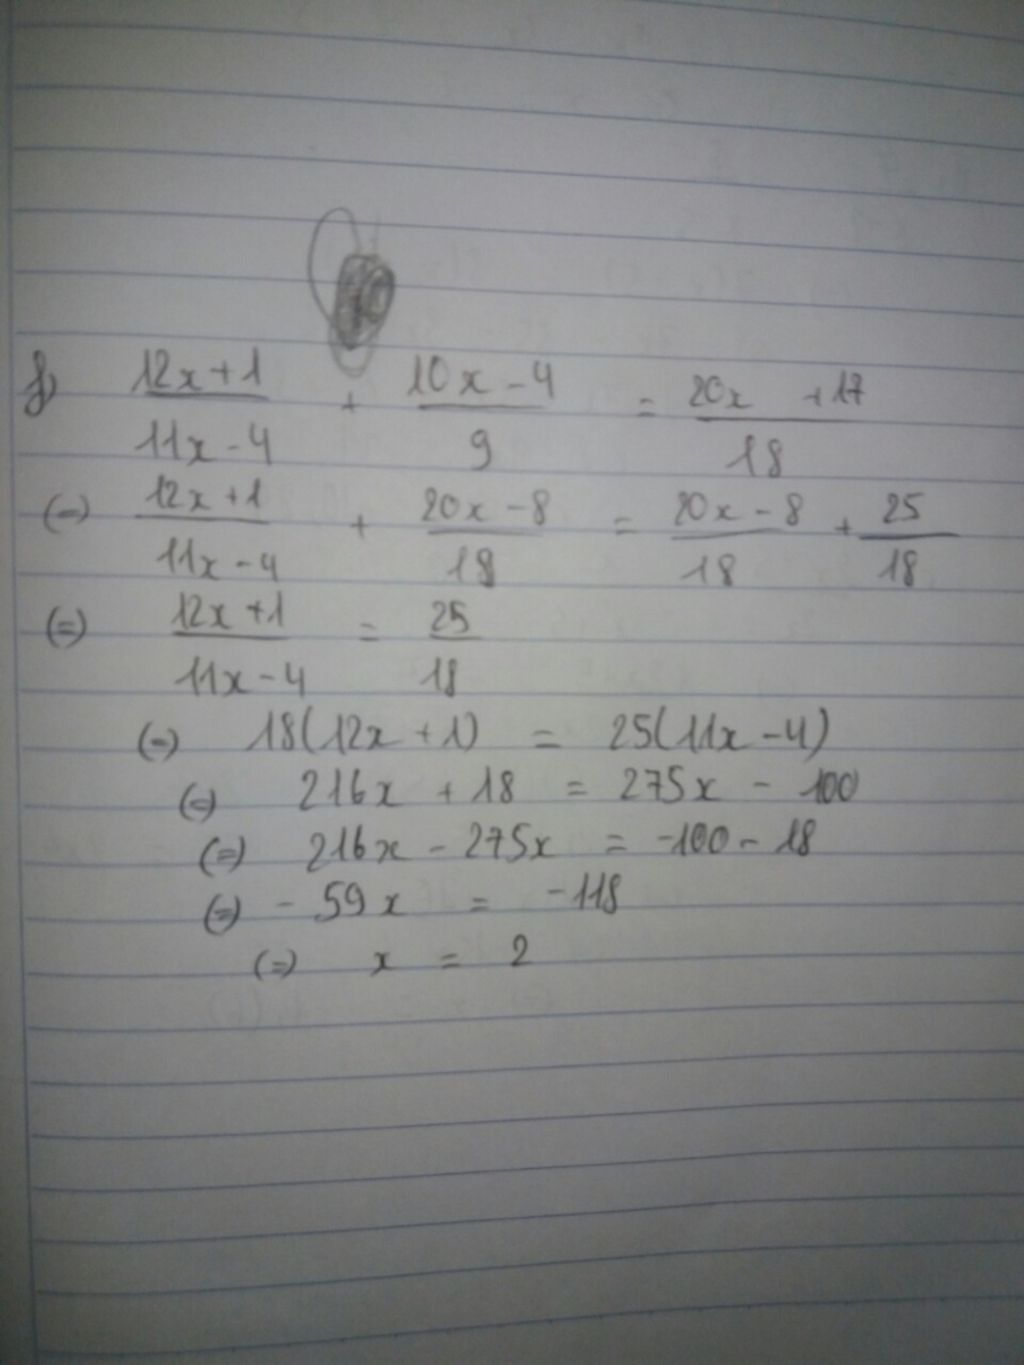 f) (12x+1)/(11x-4) + (10x-4)/9 = (20x +17)/18
(=) (12x+1)/(11x-4) + (20x-8)/18 = (20x-8)/18 + 25/18
(=) (12x+1)/(11x-4) = 25/18
(=) 18(12x+1) = 25(11x-4)
(=) 216x + 18 = 275x - 100
(=) 216x - 275x = -100 - 18
(=) - 59x = -118
(=) x = 2